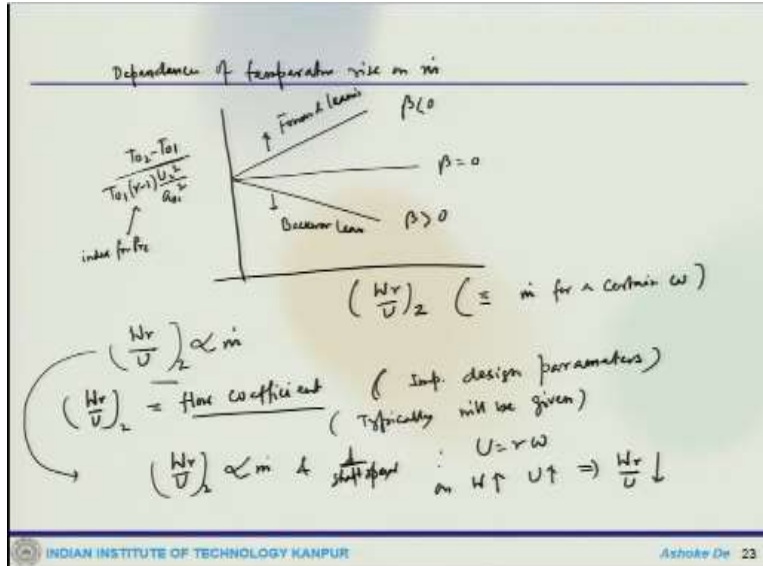 Dependence of temperature rise on ṁ
Forward leaning
β<0
T02-T01
T01(γ-1) U2²
a01²
β=0
index for Prc
Backward lean
β>0
(Wr/U)2 (≡ ṁ for a certain ω)
(Wr/U)2 ∝ ṁ
(Wr/U)2 = flow coefficient (Imp. design parameters)
(Typically will be given)
(Wr/U)2 ∝ ṁ & 1/shaft speed : U=rω
on W↑ U↑ ⇒ Wr/U ↓
INDIAN INSTITUTE OF TECHNOLOGY KANPUR
Ashoke De 23